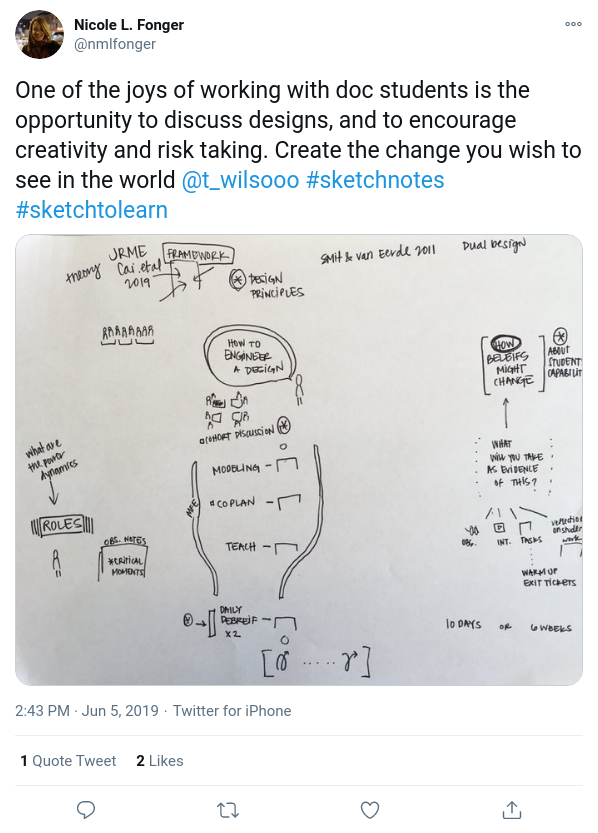 Nicole L. Fonger
@nmlfonger
One of the joys of working with doc students is the
opportunity to discuss designs, and to encourage
creativity and risk taking. Create the change you wish to
see in the world @t_wilsooo #sketchnotes
#sketchtolearn
theory
JRME
Cai. et al
2019
FRAMEWORK
DESIGN
PRINCIPLES
SMIT & van Eerde 2011
Dual Design
HOW TO
ENGINEER
A DESIGN
COHORT DISCUSSION
MODELING
COPLAN
TEACH
DAILY
DEBREIF
X2
what are
the power
dynamics
ROLES
OBS. NOTES
*CRITICAL
MOMENTS
HOW
BELEIFS
MIGHT
CHANGE
ABOUT
STUDENT
CAPABILIT
WHAT
WILL YOU TAKE
AS EVIDENCE
OF THIS?
OBS.
INT.
TASKS
on studen
work
WARM UP
EXIT TICKETS
10 DAYS OR 6 WEEKS
2:43 PM · Jun 5, 2019 · Twitter for iPhone
1 Quote Tweet 2 Likes